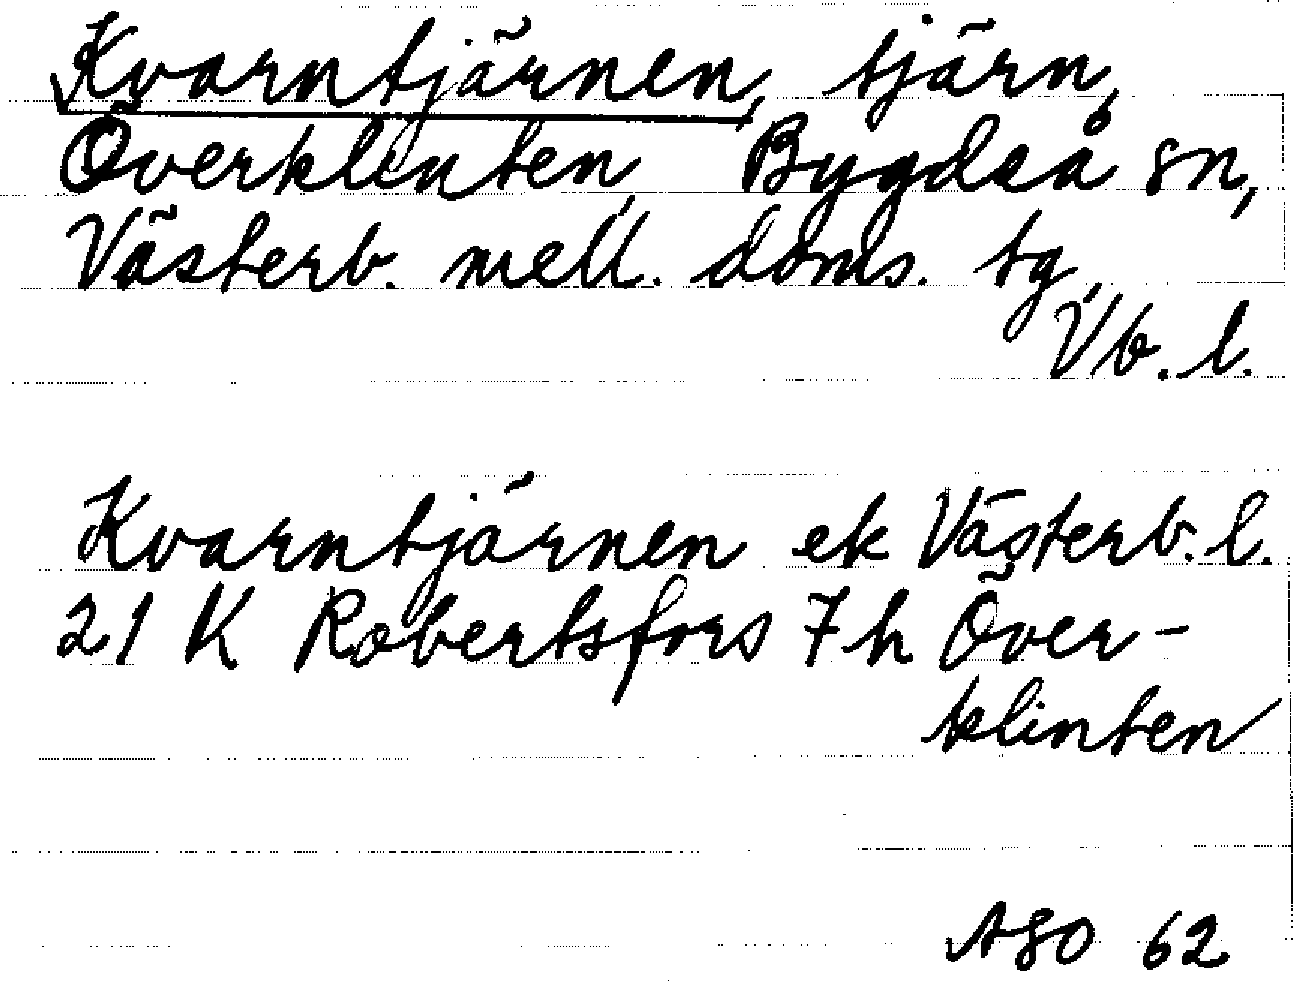 Kvarntjärnen, tjärn,
Överklinten, Bygdeå sn,
Västerb. mell. doms. tg,
Vb. l.
Kvarntjärnen ek Västerb. l.
21 K Robertsfors 7 h Över-
klinten
ASO 62